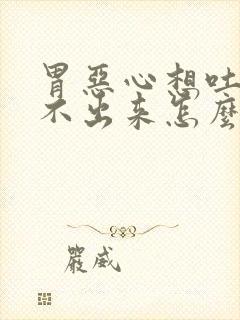 胃惡心想吐
不出来怎麼
嚴威